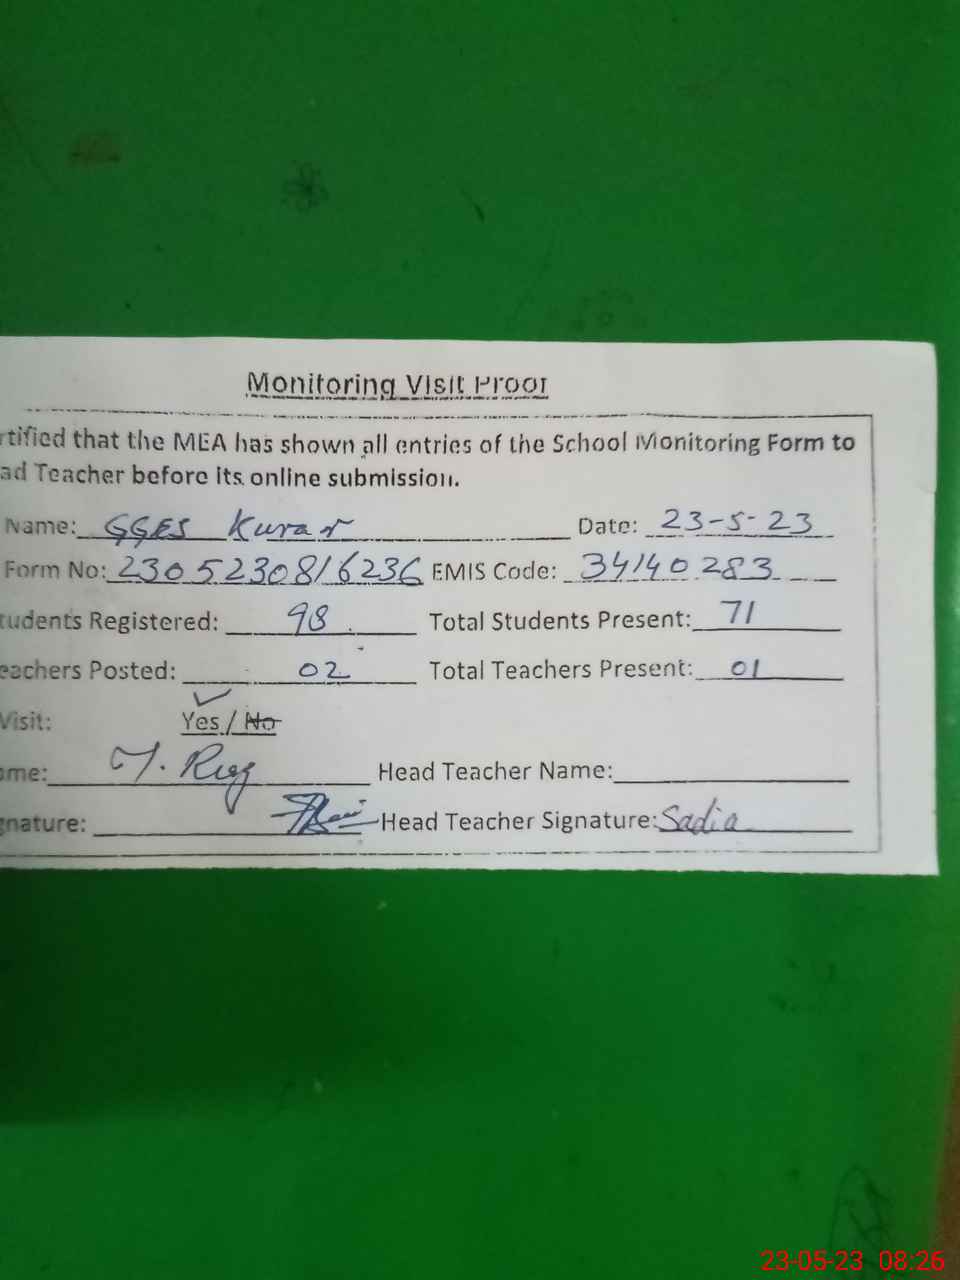 Monitoring Visit Proof
rtified that the MEA has shown all entries of the School Monitoring Form to
ad Teacher before its online submission.
Name: GGES Kurar Date: 23-5-23
Form No: 230523081 6236 EMIS Code: 34140283
tudents Registered: 98 Total Students Present: 71
eachers Posted: 02 Total Teachers Present: 01
Visit: Yes / No
me: Head Teacher Name:
gnature: Head Teacher Signature: Sadia
23-05-23 08:26